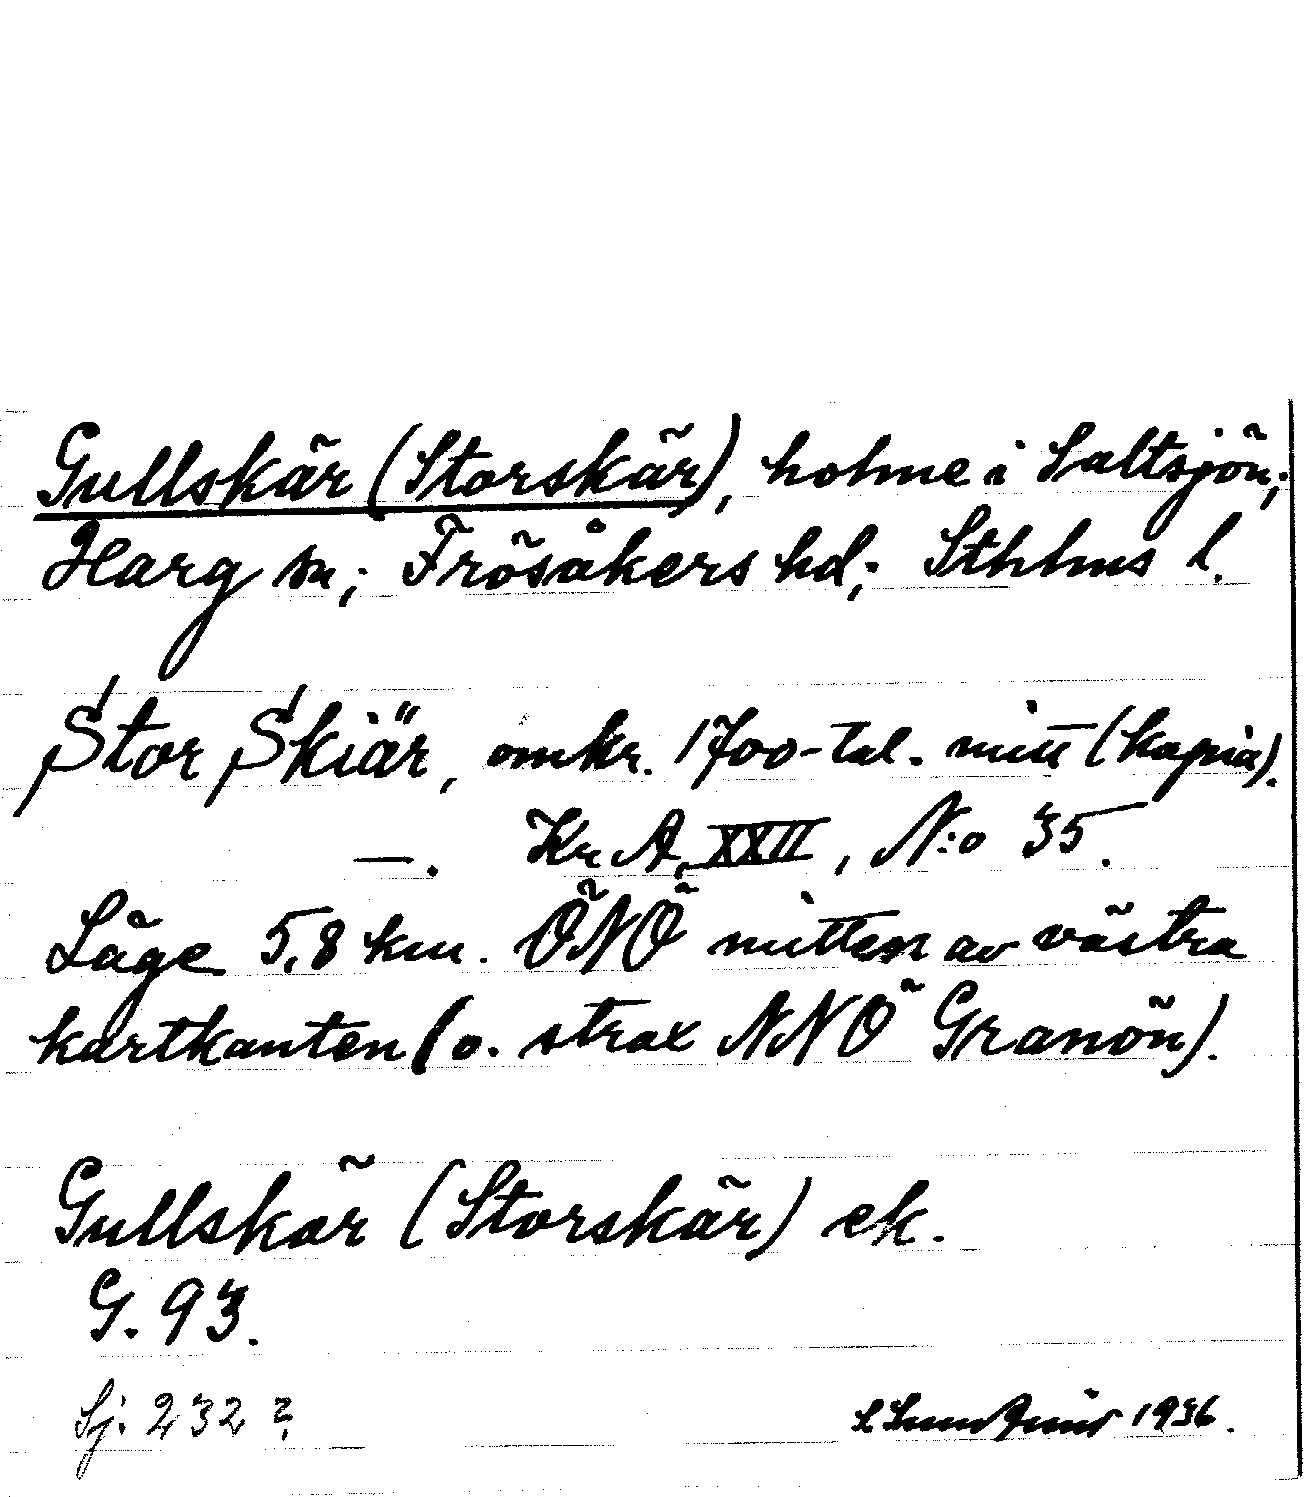 Gullskär (Storskär), holme i Saltsjön;
Harg sn; Frösåkers hd; Sthlms l.
Stor Skiär, omkr. 1700-tal. mitt (kopia).
—. Kr A, XXII, N:o 35.
Läge 5,8 km. ÖNÖ mitten av västra
kartkanten (o. strax NNÖ Granön).
Gullskär (Storskär) ek.
G. 93.
Sj. 232?
1936.